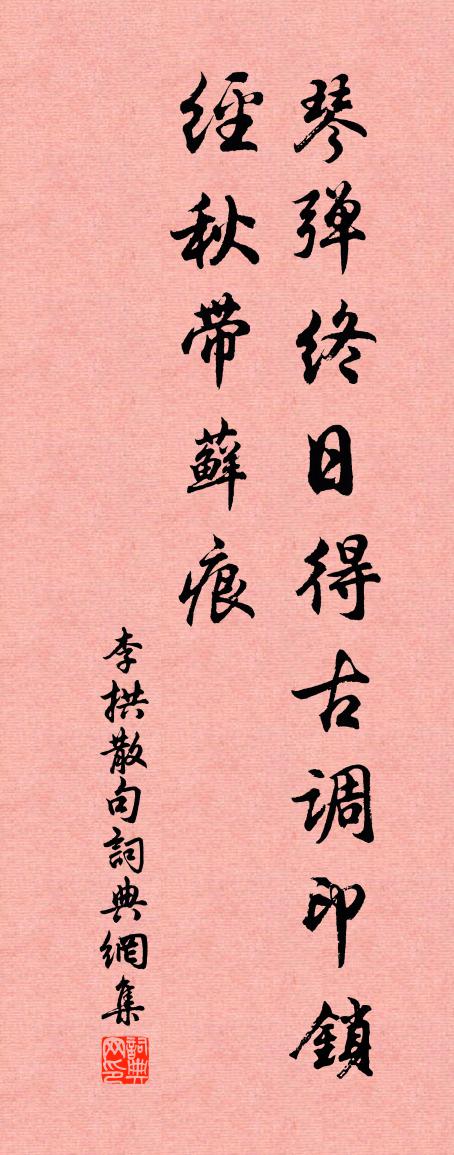 琴弹终日得古调印鎖
經秋带蘚痕
李拱散句詞典網集
詞典网印